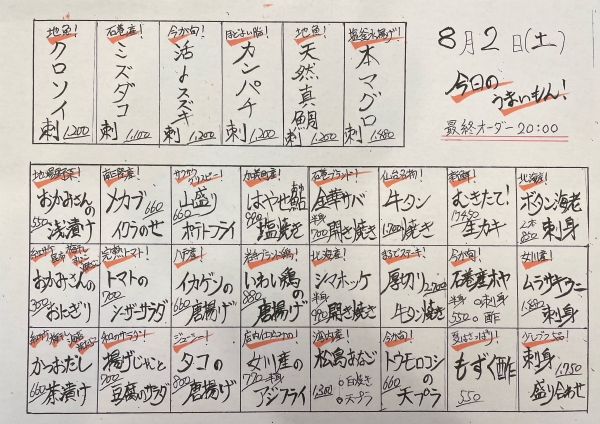 8月2日(土)
今日の
うまいもん!
最終オーダー20:00
塩釜水揚げ!
本マグロ
刺 1,480
地魚!
天然真鯛
刺 1,200
ほどよい脂!
カンパチ
刺 1,200
今が旬!
活〆スズキ
刺 1,200
石巻産!
ミズダコ
刺 1,100
地魚!
クロソイ
刺 1,200
北海道!
ボタン海老
2本 850 刺身
新鮮!
むきたて!
1ケ450
生カキ
仙台名物!
牛タン
1,700 焼き
石巻ブランド!
金華サバ
半身 700 開き焼き
はやせ鮎
塩焼き
サクサク
クリスピー!
山盛り
660
ポテトフライ
南三陸産!
メカブ 660
イクラのせ
地場野菜!
おかみさんの
550 浅漬け
女川産!
ムラサキウニ
1,880 刺身
今が旬!
石巻産ホヤ
半身 550 ○刺身
○酢
まるでステーキ!
厚切り 2,700
牛タン焼き
北海道!
シマホッケ
半身 990 開き焼き
岩手ブランド鶏!
いわい鶏
880 の
唐揚げ
八戸産!
イカゲソ
660 の
唐揚げ
完熟トマト!
トマトの
700
シーザーサラダ
おかみさんの
300
おにぎり
少しづつ5品!
刺身 1,750
盛り合わせ
夏はさっぱり!
もずく酢
550
今が旬!
トウモロコシ
660 の
天プラ
松島あなご
1,300 ○白焼き
○天プラ
店内仕込みの!
女川産の
770 半身
アジフライ
ジューシー!
タコの
800
唐揚げ
和のサラダ!
揚げじゃこと
700
豆腐のサラダ
かつおだし
660 茶漬け